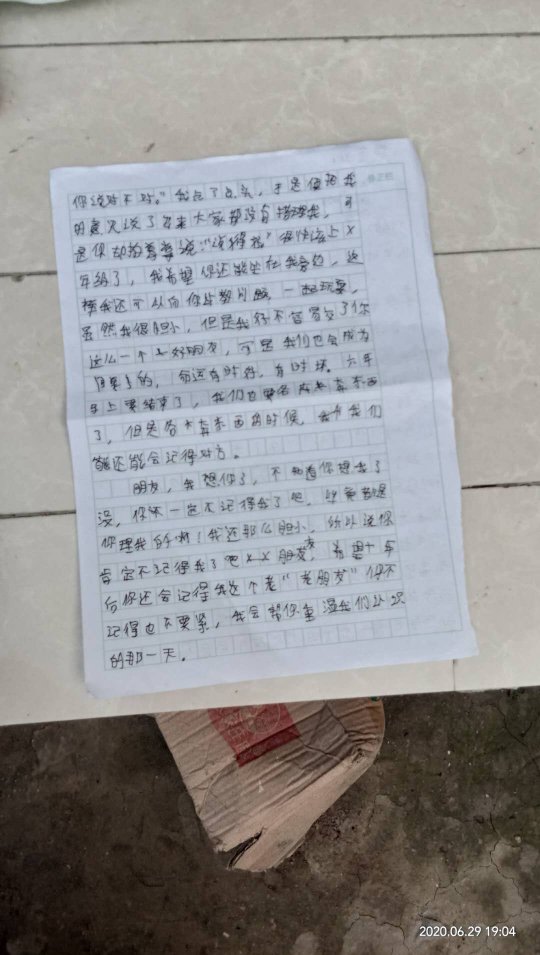 你说对不对。”我点了点头，于是便把我
的意见说了出来大家都没有搭理我，可
是你却抬着拳说：“说得好”很快该上×
年级了，我希望你还能坐在我旁边，这
样我还可以向你请教问题，一起玩耍，
虽然我很胆小，但是我好不容易交了你
这么一个上好朋友，可是我们也会成为
的，命运有时好，有时坏。六年
上要结束了，我们也要各奔东西
了，但是各奔东西的时候，我们
能还能会记得对方。
朋友，我想你了，不知道你想我了
没，你一定不记得我了吧，毕竟都是
你理我的啊！我还那么胆小，所以说你
肯定不记得我了吧××朋友，希望十年
后你还会记得我这个老“老朋友”你不
记得也不要紧，我会帮你重温我们认识
的那一天。
2020.06.29 19:04